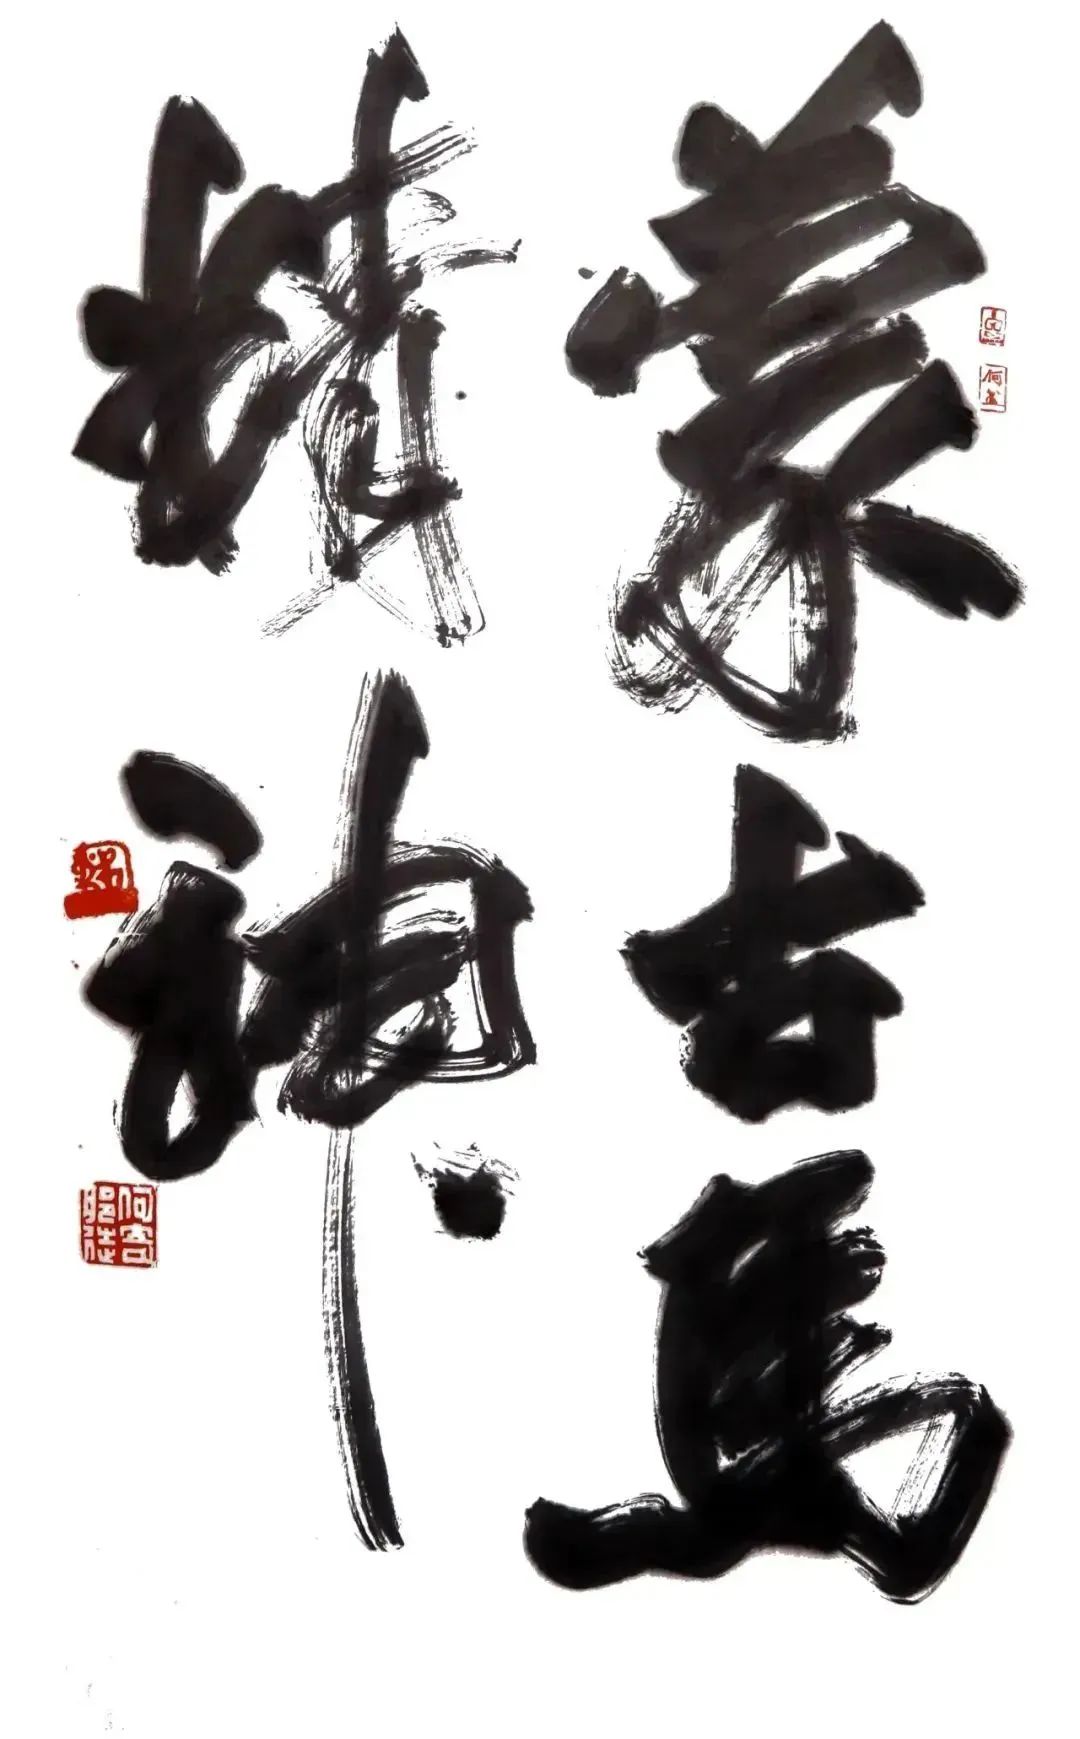 蒙古马
精神